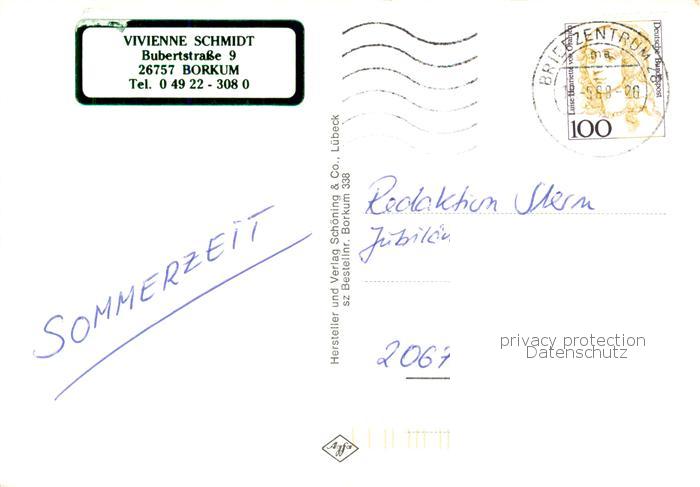 VIVIENNE SCHMIDT
Bubertstraße 9
26757 BORKUM
Tel. 0 49 22 - 308 0
SOMMERZEIT
Hersteller und Verlag Schöning & Co., Lübeck
sz Bestellnr. Borkum 338
BRIEFZENTRUM
Deutsche Bundespost
Luise Henriette von Oranien
100
Redaktion Stern
Jubilä
2067
privacy protection
Datenschutz
Agfa